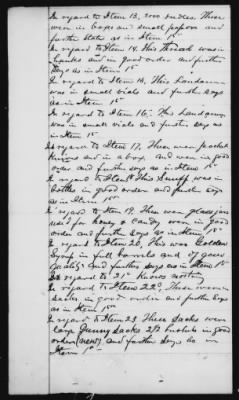 In regard to Item 13, 2000 needles. These
were in boxes and small papers and
further states as in Item 1st
In regard to Item 14. This Thread was in
hanks and in good order and further
says as in Item 1st
In regard to Item 15, This Laudanum
was in small vials and further says
as in Item 1st
In regard to Item 16. This Laudanum
was in small vials and further says as
in Item 1st
In regard to Item 17. These were pocket
knives and in a box, and were in good
order and further says as in Item 1st
In regard to Item 18 This Snuff was in
bottles in good order and further says
as in Item 1st
In regard to Item 19. These were glass jars
used for honey & candies were in good
order and further says as in Item 1st
In regard to Item 20, This was Golden
Syrup in full barrels and of good
quality and further says as in Item 1st
In regard to 21st knows nothing
In regard to Item 22d, These were
sacks in good order and further says
as in Item 1st
In regard to Item 23 These Sacks were
large Gunny Sacks 2½ bushels in good
order (new) and further says as in
Item 1st